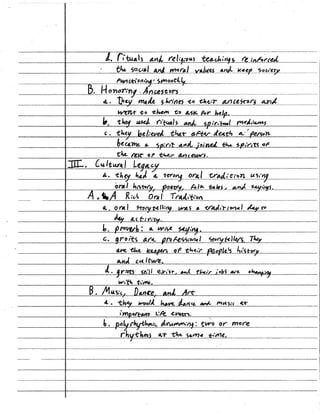 d. rituals and religious teachings reinforced
the social and moral values and keep society
functioning smoothly
B. Honoring Ancestors
a. They made shrines to their ancestors and
went to them to ask for help.
b. they used rituals and spiritual mediums
c. they believed that after death a person
became a spirit and joined the spirits of
the rest of their ancestors.
III. Cultural Legacy
a. they had a strong oral tradition using
oral history, poetry, folk tales, and sayings.
A. Rich Oral Tradition
a. oral storytelling was a traditional day to
day activity.
b. proverb: a wise saying.
c. griots are professional storytellers. They
are the keepers of their people's history
and culture.
d. griots still exist, and their jobs are changing
with time.
B. Music, Dance, and Art
a. they would have dance and music at
important life events.
b. polyrhythmic drumming: two or more
rhythms at the same time.